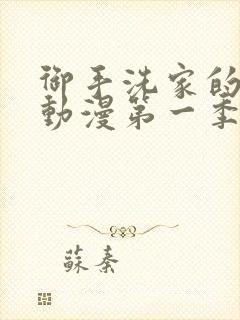 御手洗家的
動漫第一季
蘇秦